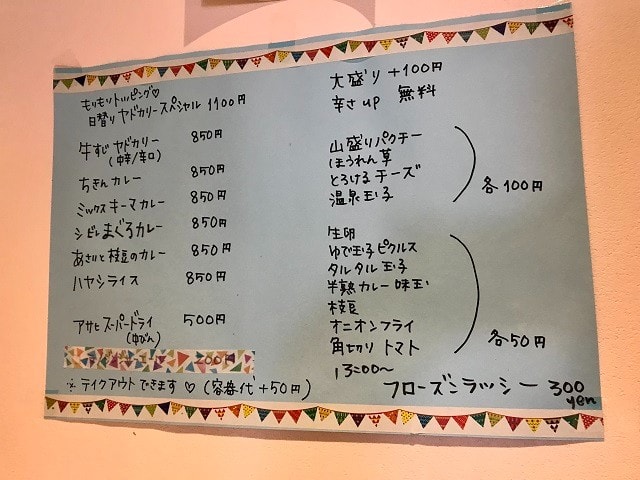 もりもりトッピング♡
日替り ヤドカリースペシャル 1100円
牛すじ ヤドカリー 850円
(中辛/辛口)
ちきんカレー 850円
ミックスキーマカレー 850円
シビレまぐろカレー 850円
あさりと枝豆のカレー 850円
ハヤシライス 850円
アサヒ スーパードライ 500円
(中びん)
※テイクアウトできます♡(容器代+50円)
大盛り +100円
辛さup 無料
山盛りパクチー
ほうれん草
とろけるチーズ
温泉玉子
各100円
生卵
ゆで玉子ピクルス
タルタル玉子
半熟カレー味玉
枝豆
オニオンフライ
角切りトマト
各50円
フローズンラッシー 300
yen